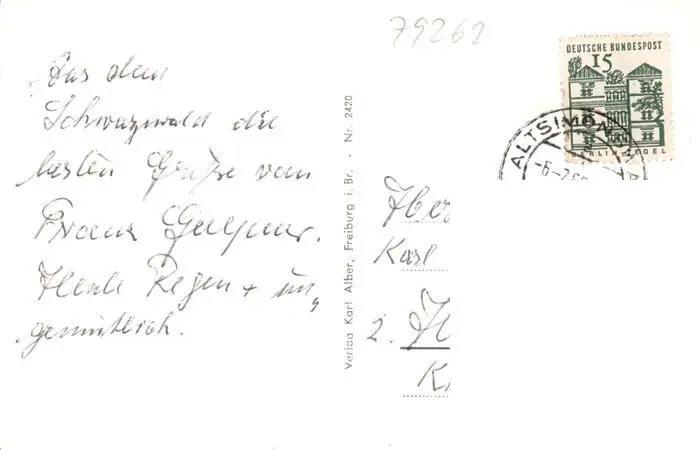 79261
Aus dem
Schwarzwald die
besten Grüße von
Franz
Heute Regen + un„
gemütlich.
Verlag Karl Alber, Freiburg i. Br. - Nr. 2420
DEUTSCHE BUNDESPOST
15
BERLIN TEGEL
ALTSIMON
-6-7
Karl
2. H